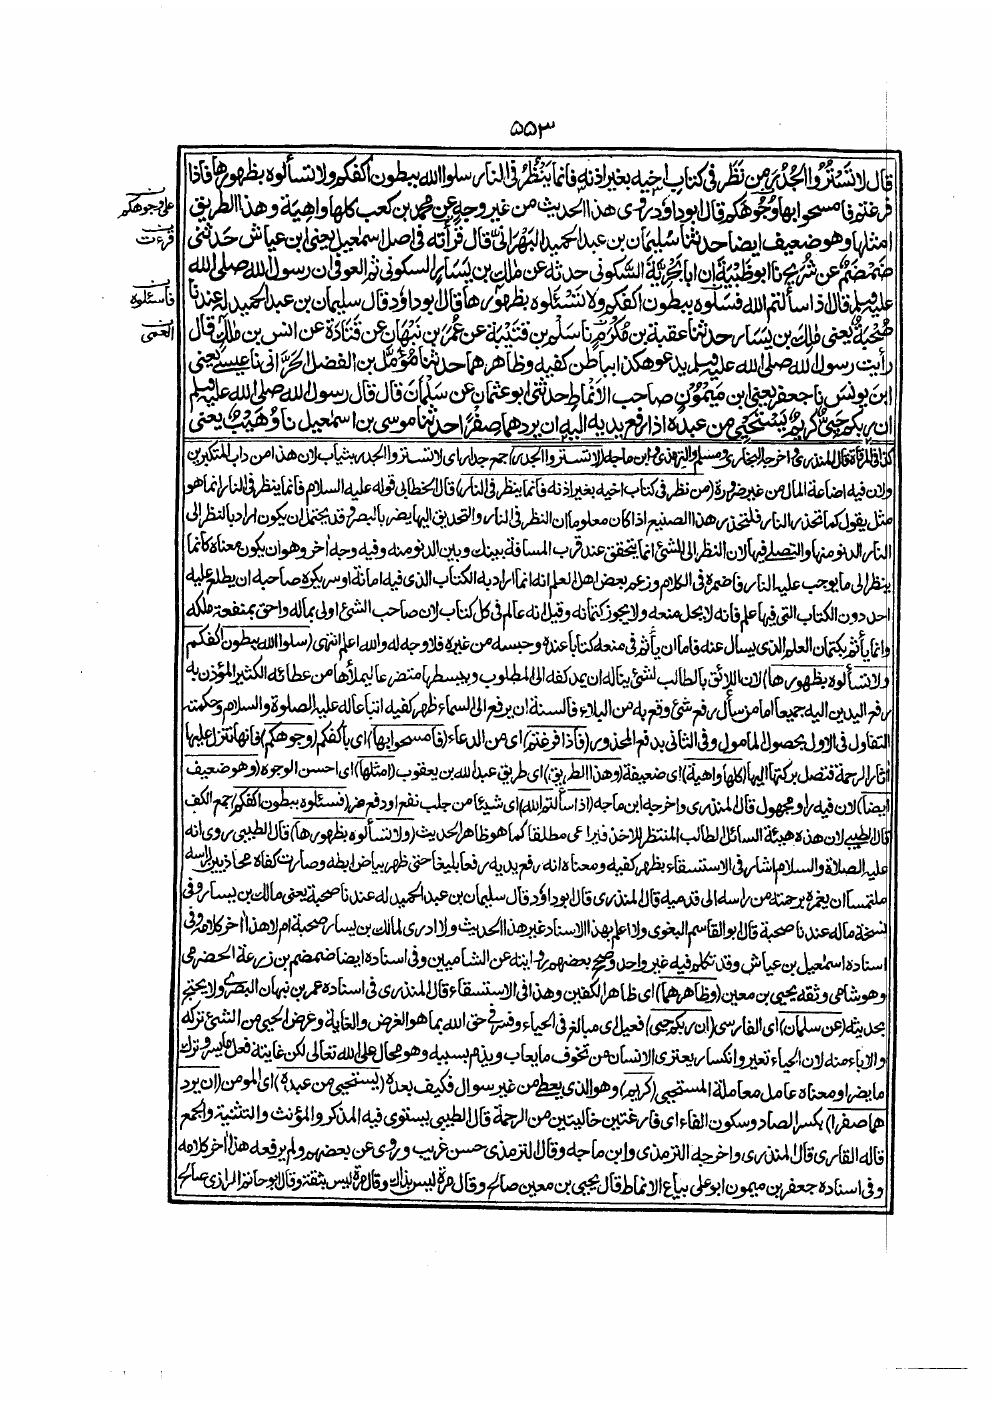 ۵۵۳
قال لا تستروا الجُدُر من نَظَر فى كتاب اخيه بغير اذنه فانما يَنْظُر فى النار سلوا الله ببطون اكفكم ولا تسألوه بظهورها فاذا
فرغتم فامسحوا بها وُجُوهكم قال ابو داؤد روى هذا الحديث من غير وجه عن محمد بن كعب كلها واهية وهذا الطريق
امثلها وهو ضعيف ايضا حدثنا سُليمان بن عبد الحميد البَهْرانىّ قال قرأته فى اصل اسمعيل يعنى ابن عياش حدثنى
ضمضم عن شُريح نا ابو ظَبْيَة ان ابا بَحْرِيَّة السَّكونى حدثه عن مٰلك بن يَسَار السكونى ثم العوفى ان رسول الله صلى الله
عليه وسلم قال اذا سألتم الله فسَلُوه ببطون اكفكم ولا تَسْئَلوه بظهورها قال ابو داؤد قال سليمان بن عبد الحميد له عندنا
صُحْبَة يعنى مٰلك بن يسار حدثنا عقبة بن مُكْرَم نا سَلْم بن قُتَيْبَة عن عُمَر بن نَبْهَان عن قَتَادة عن انس بن مٰلك قال
رأيت رسول الله صلى الله عليه وسلم يدعو هكذا بباطن كفيه وظاهرهما حدثنا مُؤَمَّل بن الفضل الحرَّانى نا عيسى يعنى
ابن يونس نا جعفر يعنى ابن مَيْمُون صاحب الانماط حدثنى ابو عثمان عن سَلْمان قال قال رسول الله صلى الله عليه وسلم
ان ربكم حَيِىٌّ كريم يَسْتَحْيِى من عبده اذا رفع يديه اليه ان يردهما صِفْرا حدثنا موسى بن اسمعيل نا وُهَيْب يعنى
على وجوهكم
قرءت
فاسئلوه
كذا فى المرقاة قال المنذرى واخرجه البخارى ومسلم والترمذى وابن ماجه (لا تستروا الجدر) جمع جدار اى لا تستروا الجدر بثياب لان هذا من داب المتكبرين
ولان فيه اضاعة المال من غير ضرورة (من نظر فى كتاب اخيه بغير اذنه فانما ينظر فى النار) قال الخطابى قوله عليه السلام فانما ينظر فى النار انما هو
مثل يقول كما تحذر النار فلتحذر هذا الصنيع اذا كان معلوما ان النظر فى النار والتحديق اليها يضر بالبصر وقد يحتمل ان يكون اراد بالنظر الى
النار الدنو منها والتصلى فيها لان النظر الى الشئ انما يتحقق عند قرب المسافة بينك وبين الدنو منه وفيه وجه اٰخر وهو ان يكون معناه كانما
ينظر الى ما يوجب عليه النار فاضمره فى الكلام وزعم بعض اهل العلم انه انما اراد به الكتاب الذى فيه امانة او سر يكره صاحبه ان يطلع عليه
احد دون الكتاب التى فيها علم فانه لا يحل منعه ولا يجوز كتمانه وقيل انه عام فى كل كتاب لان صاحب الشئ اولى بماله واحق بمنفعة ملكه
وانما يأثم بكتمان العلم الذى يسأل عنه فاما ان يأثم فى منعه كتابا عنده وحبسه من غيره فلا وجه له والله اعلم انتهى (سلوا الله ببطون اكفكم
ولا تسألوه بظهورها) لان اللائق بالطالب لشئ يناله ان يمد كفه الى المطلوب ويبسطها متضرعا ليملأها من عطائه الكثير المؤذن به
رفع اليدين اليه جميعا اما من سأل رفع شئ وقع به من البلاء فالسنة ان يرفع الى السماء ظهر كفيه اتباعا له عليه الصلوة والسلام وحكمته
التفاول فى الاول بحصول المامول وفى الثانى بدفع المحذور (فاذا فرغتم) اى من الدعاء (فامسحوا بها) اى باكفكم (وجوهكم) فانها تنزل عليها
اٰثار الرحمة فتصل بركتها اليها (كلها واهية) اى ضعيفة (وهذا الطريق) اى طريق عبد الله بن يعقوب (امثلها) اى احسن الوجوه (وهو ضعيف
ايضا) لان فيه راو مجهول قال المنذرى واخرجه ابن ماجه (اذا سألتم الله) اى شيئا من جلب نفع او دفع ضر (فسئلوه ببطون اكفكم) جمع الكف
قال الطيبى لان هذه هيئة السائل الطالب المنتظر للاخذ فيراعى مطلقا كما هو ظاهر الحديث (ولا تسألوه بظهورها) قال الطيبى روى انه
عليه الصلاة والسلام اشار فى الاستسقاء بظهر كفيه ومعناه انه رفع يديه رفعا بليغا حتى ظهر بياض ابطه وصارت كفاه محاذيين لرأسه
ملتمسا ان يغمره برحمته من راسه الى قدميه قال المنذرى قال ابو داؤد قال سليمان بن عبد الحميد له عندنا صحبة يعنى مالك بن يسار وفى
نسخة ماله عندنا صحبة قال ابو القاسم البغوى ولا اعلم بهذا الاسناد غير هذا الحديث ولا ادرى لمالك بن يسار صحبة ام لا هذا اٰخر كلامه وفى
اسناده اسمعيل بن عياش وقد تكلم فيه غير واحد وصحح بعضهم روايته عن الشاميين وفى اسناده ايضا ضمضم بن زرعة الحضرمى
وهو شامى وثقه يحيى بن معين (وظاهرهما) اى ظاهر الكفين وهذا فى الاستسقاء قال المنذرى فى اسناده عمر بن نبهان البصرى ولا يحتج
بحديثه (عن سلمان) اى الفارسى (ان ربكم حيى) فعيل اى مبالغ فى الحياء وفسر فى حق الله بما هو الغرض والغاية وغرض الحيى من الشئ تركه
والاباء منه لان الحياء تغير وانكسار يعترى الانسان من تخوف ما يعاب ويذم بسببه وهو محال على الله تعالى لكن غايته فعل ما يسر وترك
ما يضر او معناه عامل معاملة المستحيى (كريم) وهو الذى يعطى من غير سوال فكيف بعده (يستحيى من عبده) اى المومن (ان يرد
هما صفرا) بكسر الصاد وسكون الفاء اى فارغتين خاليتين من الرحمة قال الطيبى يستوى فيه المذكر والمؤنث والتثنية والجمع
قاله القارى قال المنذرى واخرجه الترمذى وابن ماجه وقال الترمذى حسن غريب وروى عن بعضهم ولم يرفعه هذا اٰخر كلامه
وفى اسناده جعفر بن ميمون ابو على بياع الانماط قال يحيى بن معين صالح وقال مرة ليس بذاك وقال مرة ليس بثقة وقال ابو حاتم الرازى صالح